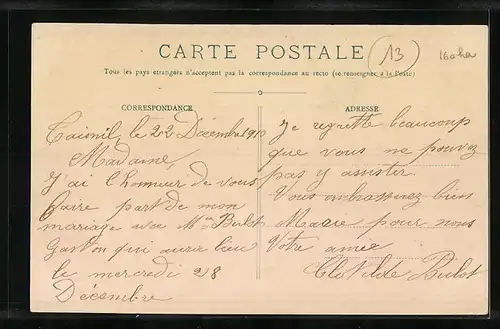 CARTE POSTALE
(13)
Tous les pays étrangers n'acceptent pas la correspondance au recto (se renseigner à la Poste)
CORRESPONDANCE
le 22 Décembre 1910
Madame,
J'ai l'honneur de vous
faire part de mon
mariage avec Mr Bulot
Gaston qui aura lieu
le mercredi 28
Décembre
ADRESSE
Je regrette beaucoup
que vous ne pouvez
pas y assister.
Vous embrasserez bien
Marie pour nous
Votre amie
Clotilde Bulot